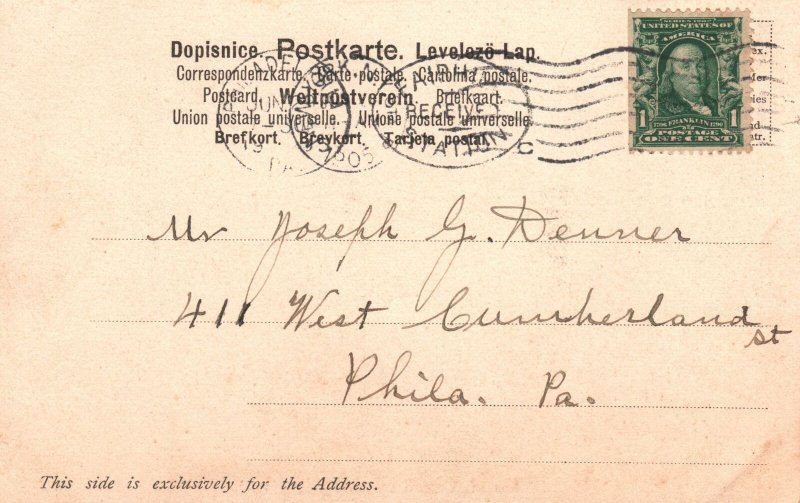 Dopisnice. Postkarte. Levelezö-Lap.
Correspondenzkarte. Carte postale. Cartolina postale.
Postcard. Weltpostverein. Briefkaart.
Union postale universelle. Unione postale universelle
Brefkort. Brevkort. Tarjeta postal.
RECEIVED
STATION
C
1905
PA
SERIES 1902
UNITED STATES OF
AMERICA
1706 FRANKLIN 1790
1 1
POSTAGE
ONE CENT
Mr Joseph G. Denner
411 West Cumberland
st
Phila. Pa.
This side is exclusively for the Address.